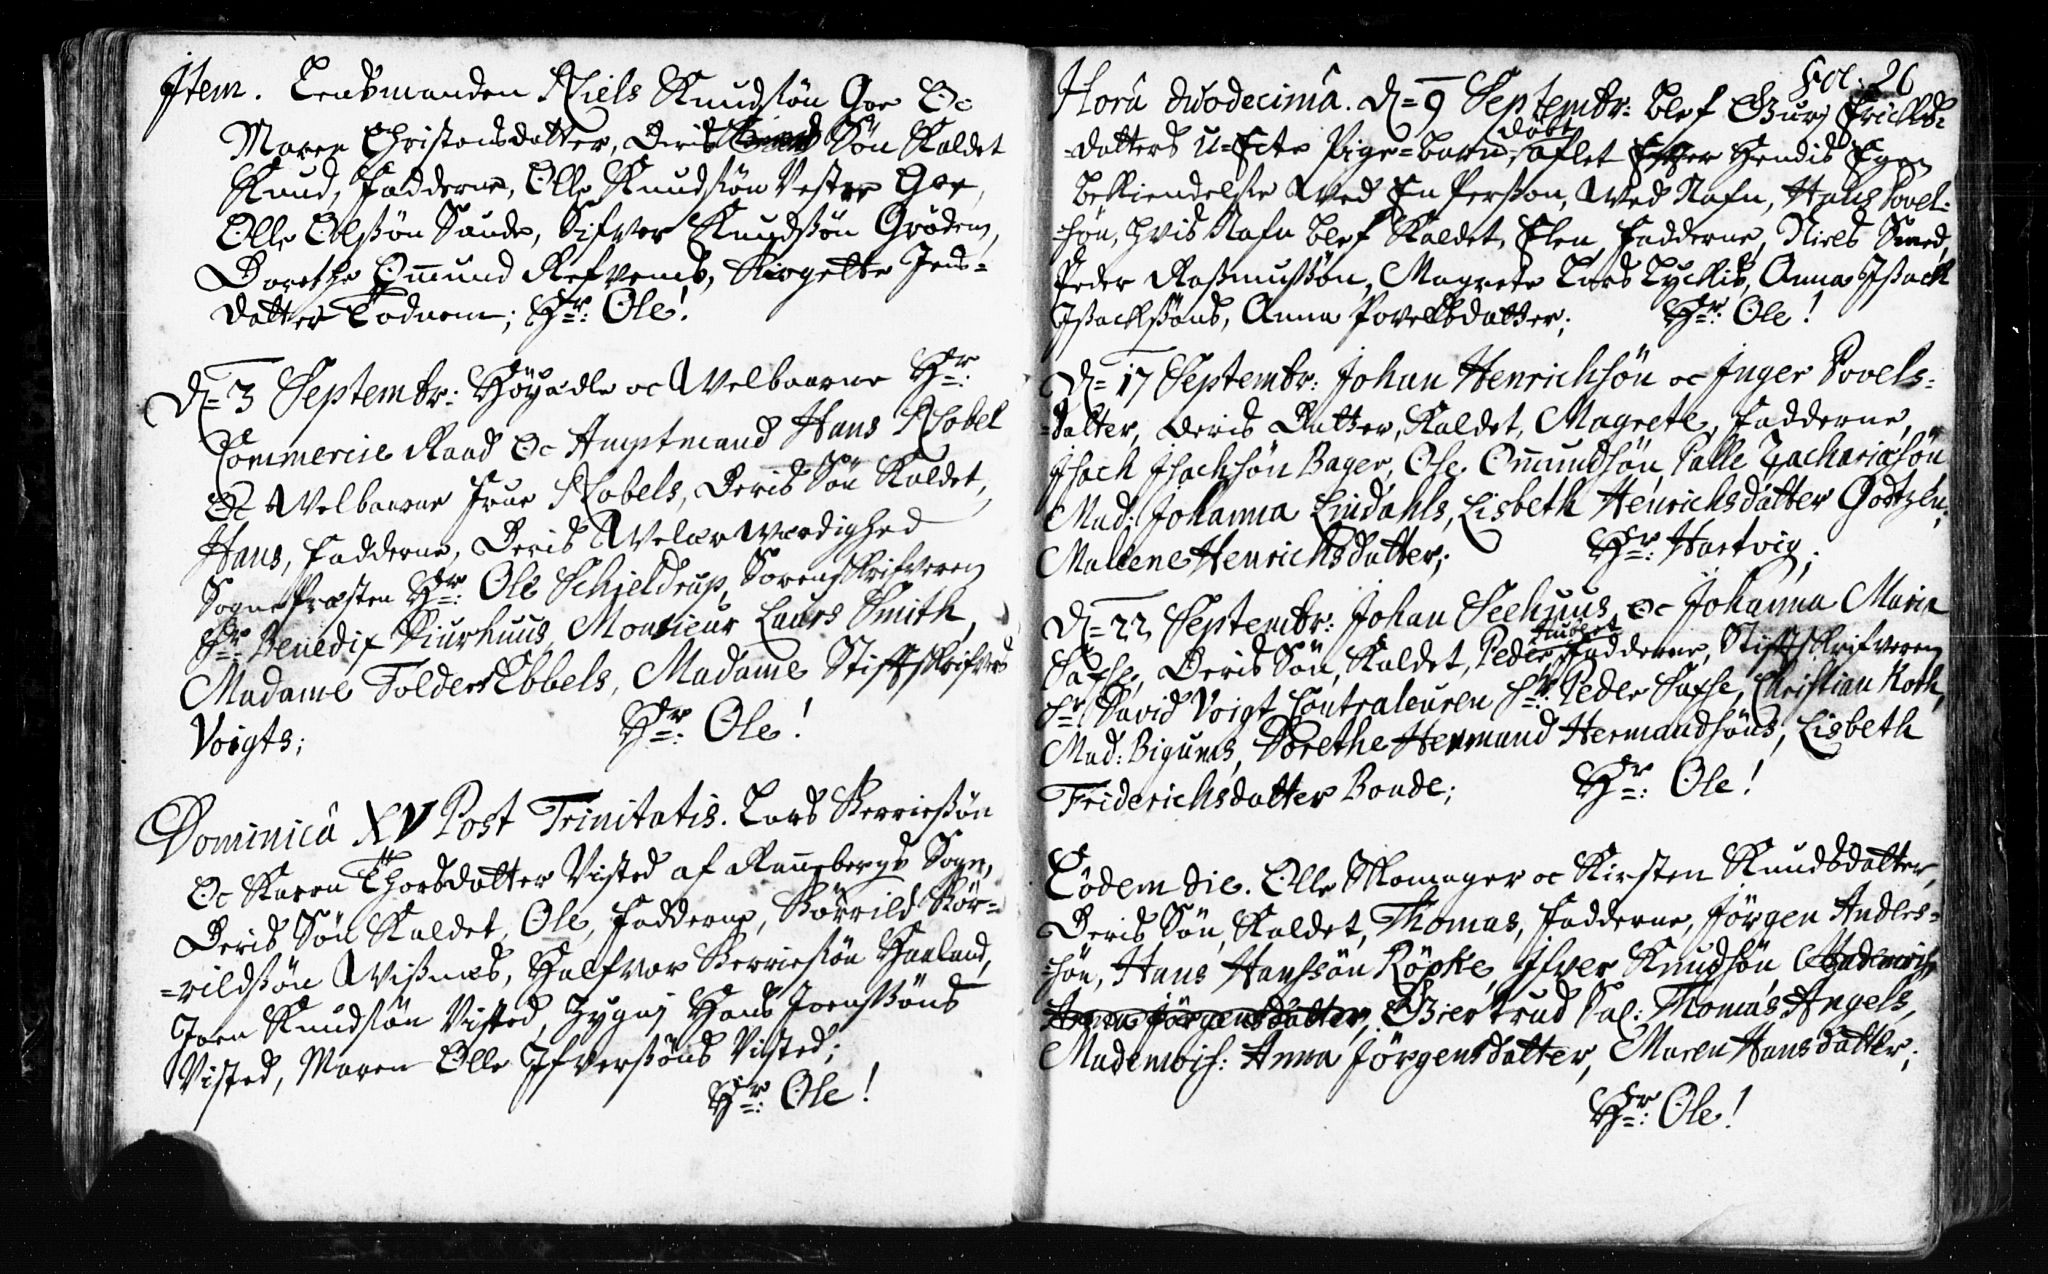 Item. Lensmanden Niels Knudsøn Goe Oc
Maren Christensdatter, Deris Søn Kaldet
Knud, Fadderne, Olle Knudsøn Vestre Goe,
Olle Olsøn Sande, Sifver Knudssøn Grødem,
Dorethe Ommund Refvems, Birgette Jens-
datter Todnem; Hr: Ole!
D= 3 Septembr: Höyædle oc Welbaarne Hr:
Commercie Raad Oc Amptmand Hans Nobel
Oc Welbaarne Frue Nobels, Deris Søn Kaldet,
Hans, Fadderne, Deris Welærwærdighed
Sogne Præsten Hr: Ole Schieldrup, Sorenskrifveren
Sr: Benedix Kiurhuus, Monsieur Laurs Smith,
Madame Tolder Ebbels, Madame Stiftskrifver
Voigts; Hr: Ole!
Dominicâ XV Post Trinitatis. Lars Berriesøn
Oc Karen Thorsdatter Visted af Rannebergs Sogn,
Deris Søn Kaldet, Ole, Fadderne, Børrild Bør-
=rildsøn Wisnæs, Halfvor Berriesøn Haaland,
Joen Knudsøn Visted, Hans Joenssøns
Visted, Maren Olle Ifversøns Visted;
Hr: Ole!
Fol: 26
Horâ duodecimâ. D= 9 Septembr: blef Gurj Erichs-
=datters U-Ecte Pige-barn døbt, aflet Efter Hendis Egen
bekiendelse Ved En Person, Ved Nafn, Hans Povel-
=søn, Hvis Nafn blef Kaldet, Elen, Fadderne, Niels Smed,
Peder Rasmussøn, Magrete Lars Lyckis, Anna Isach
Isachsøns, Anna Povelsdatter; Hr: Ole!
D= 17 Septembr: Johan Henrichsøn oc Inger Povels-
=datter, Deris Datter, Kaldet, Magrete, Fadderne,
Isach Isachsøn Bager, Ole Ommundsøn, Palle Zachariæsøn
Mad: Johanna Lindahls, Lisbeth Henrichsdatter Godtzen,
Mallene Henrichsdatter; Hr: Hartvig;
D= 22 Septembr: Johan Seehuus oc Johanna Maria
Saxse, Deris Søn, Kaldet, Peder, Fadderne, Stiftskrifveren
Sr: David Voigt, Contraleuren Sr: Peder Saxse, Christian Roth,
Mad: Bigums, Dorethe Hermand Hermandsøns, Lisbeth
Friderichsdatter Bonde; Hr: Ole!
Eodem die. Olle Skomager oc Kirsten Knudsdatter,
Deris Søn, Kaldet, Thomas, Fadderne, Jørgen Andles-
=søn, Hans Hansøn Röpke, Ifver Knudsøn Mademois:
Anna Jørgensdatter, Giertrud Sal: Thomas Angels,
Mademois: Anna Jørgensdatter, Maren Hansdatter;
Hr: Ole!